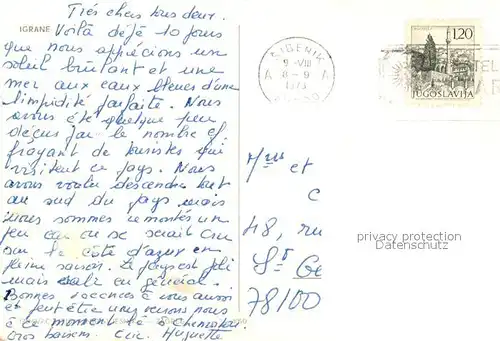 IGRANE
Très chers tous deux.
Voilà déjà 10 jours
que nous apprécions un
soleil brûlant et une
mer aux eaux bleues d'une
limpidité parfaite. Nous
avons été quelque peu
déçus par le nombre ef-
froyant de touristes qui
visitent ce pays. Nous
avons voulu descendre tout
au sud du pays mais
nous sommes remontés un
peu car on se serait cru
sur la côte d'azur en
pleine saison. Le pays est joli
mais sale en général.
Bonnes vacances à vous aussi
et peut être nous verrons nous
à ce moment là à
Gros baisers. Huguette
ŠIBENIK
9-VIII
8-9
1973
A A
1,20
JUGOSLAVIJA
Mme et
C
48, ru
St Ge
78100
privacy protection
Datenschutz